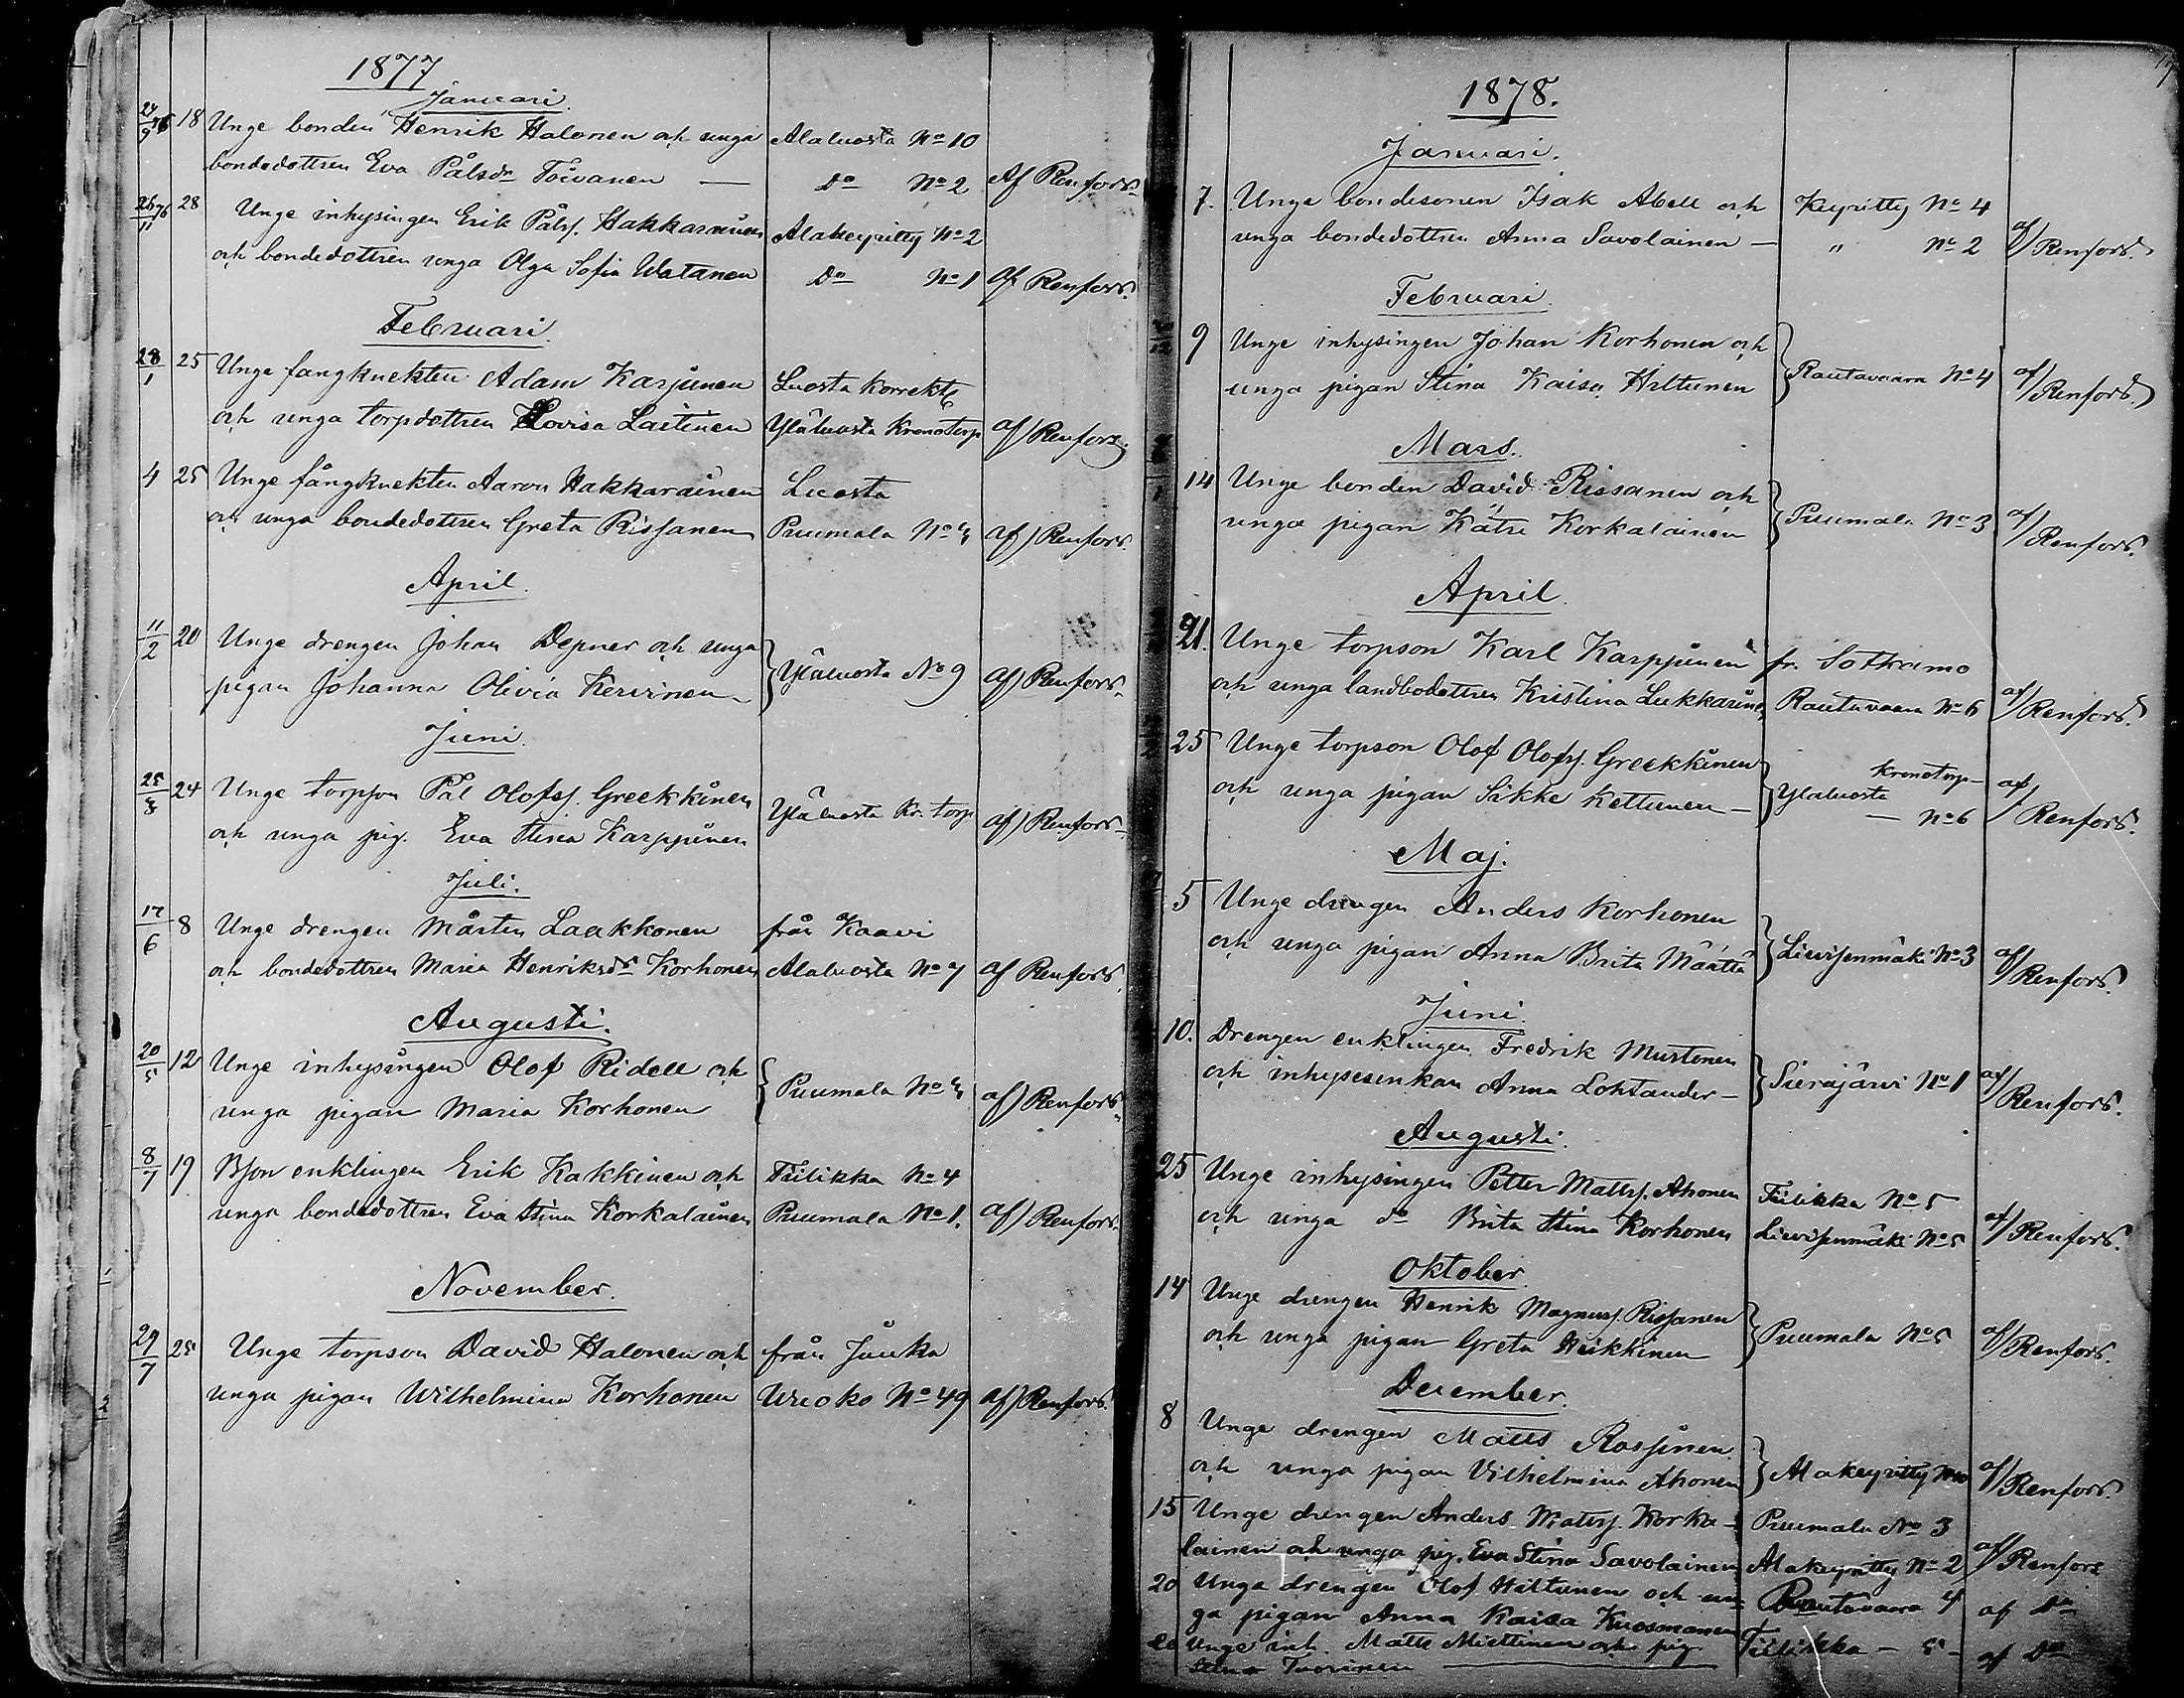 1877
Januari.
24/9 76 18 Unge bonden Henrik Halonen och unga Alaluosta No 10
bondedottren Eva Pålsdr Toivanen — Do No 2 Af Renfors
26/11 76 28 Unge inhysingen Erik Pålss. Hakkarainen Alakeyritty No 2
och bondedottren unga Olga Sofia Watanen Do No 1 af Renfors.
Februari.
28/1 25 Unge fangknekten Adam Karjunen Luosta Korrekt
och unga torpdottren Lovisa Laitinen Yläluosta Kronotorp af) Renfors.
4 25 Unge fångknekten Aaron Hakkarainen Luosta
och unga bondedottren Greta Rissanen Puumala No af) Renfors.
April.
11/2 20 Unge drengen Johan Depner och unga
pigan Johanna Olivia Kervinen } Yläluosta No 9 af) Renfors.
Juni.
25/3 24 Unge torpson Pål Olofss. Greekkinen Yläluosta Kr. torp
och unga pig. Eva Stina Karppinen af) Renfors.
Juli.
17/6 8 Unge drengen Mårten Laakkonen från Kaavi
och bondedottren Maria Henriksdr Korhonen Alaluosta No 7 af Renfors.
Augusti.
20/5 12 Unge inhysingen Olof Ridell och
unga pigan Maria Korhonen { Puumala No af) Renfors.
8/7 19 Bson enklingen Erik Kakkinen och Tiilikka No 4
unga bondedottren Eva Stina Korkalainen Puumala No 1. af) Renfors.
November.
29/7 25 Unge torpson David Halonen och från Juuka
unga pigan Wilhelmina Korhonen Wuoko No 49 af) Renfors.
1878.
Januari.
7. Unge bondesonen Isak Abell och Keyritty No 4
unga bondedottren Anna Savolainen — " No 2 af/ Renfors.
Februari.
9 Unge inhysingen Johan Korhonen och
unga pigan Stina Kaisa Hiltunen } Rautavaara No 4 af/ Renfors.
Mars.
14 Unge bonden David Rissanen och
unga pigan Kätri Korkalainen } Puumala No 3 af/ Renfors.
April.
21. Unge torpson Karl Karppinen fr. Sotkamo
och unga landbodottren Kristina Lukkarinen Rautavaara No 6 af/ Renfors.
25 Unge torpson Olof Olofss. Greekkinen
och unga pigan Sikke Kettunen — } Kronotorp- Yläluosta — No 6 af/ Renfors.
Maj.
5 Unge drengen Anders Korhonen
och unga pigan Anna Brita Määttä } Lievisenmäki No 3 af/ Renfors.
Juni.
10. Drengen enklingen Fredrik Mustonen
och inhysesenkan Anna Lohtander — } Sierajärvi No 1 af/ Renfors.
Augusti.
25 Unge inhysingen Petter Mattss. Ahonen Tiilikka No 5
och unga do Brita Stina Korhonen Lievisenmäki No 5 af/ Renfors.
Oktober.
14 Unge drengen Henrik Magnuss. Rissanen
och unga pigan Greta Heikkinen } Puumala No 5 af/ Renfors.
December.
8 Unge drengen Matts Rossinen
och unga pigan Vilhelmina Ahonen } Alakeyritty No 10 af/ Renfors.
15 Unge drengen Anders Mattss. Korka- Puumala No 3
lainen och unga pig. Eva Stina Savolainen Alakeyritty No 2 af/ Renfors
20 Unga drengen Olof Hiltunen och un- Rautavaara 4 af Do
ga pigan Anna Kaisa Kuosmanen
Unge inh. Matts Miettinen och pig. Tiilikka — 5 — af Do
Stina Tuorinen